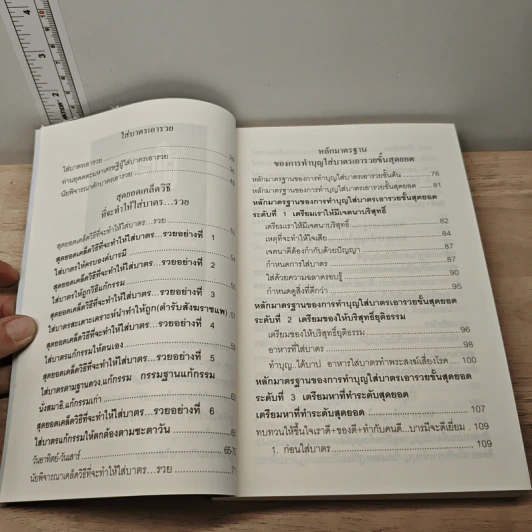 ใส่บาตรเอารวย
ใส่บาตรเอารวย
ท่านทุคคตะมหาเศรษฐีผู้ใส่บาตรเอารวย
นัยพิจารณาตักบาตรเอารวย
สุดยอดเคล็ดวิธี
ที่จะทำให้ใส่บาตร...รวย
สุดยอดเคล็ดวิธีที่จะทำให้ใส่บาตร...รวย
สุดยอดเคล็ดวิธีที่จะทำให้ใส่บาตร...รวยอย่างที่ 1
ใส่บาตรให้ครบองค์บารมี
สุดยอดเคล็ดวิธีที่จะทำให้ใส่บาตร...รวยอย่างที่ 2
ใส่บาตรให้ถูกวิธีแก้กรรม
สุดยอดเคล็ดวิธีที่จะทำให้ใส่บาตร...รวยอย่างที่ 3
ใส่บาตรสะเดาะเคราะห์นำทำให้ถูก(ตำรับสังฆราชแพ)
สุดยอดเคล็ดวิธีที่จะทำให้ใส่บาตร...รวยอย่างที่ 4
ใส่บาตรแก้กรรมให้ตนเอง
สุดยอดเคล็ดวิธีที่จะทำให้ใส่บาตร...รวยอย่างที่ 5
ใส่บาตรตามฐานดวง,แก้กรรม กรรมฐานแก้กรรม
นั่งสมาธิ,แก้กรรมเก่า
สุดยอดเคล็ดวิธีที่จะทำให้ใส่บาตร...รวยอย่างที่ 6
ใส่บาตรแก้กรรมให้ตกต้องตามชะตาวัน
วันอาทิตย์-วันเสาร์
นัยพิจารณาเคล็ดวิธีที่จะทำให้ใส่บาตร...รวย
หลักมาตรฐาน
ของการทำบุญใส่บาตรเอารวยขั้นสุดยอด
หลักมาตรฐานของการทำบุญใส่บาตรเอารวยขั้นต้น 78
หลักมาตรฐานของการทำบุญใส่บาตรเอารวยขั้นสุดยอด 81
หลักมาตรฐานของการทำบุญใส่บาตรเอารวยขั้นสุดยอด
ระดับที่ 1 เตรียมเราให้มีเจตนาบริสุทธิ์
เตรียมเราให้มีเจตนาบริสุทธิ์ 82
เหตุที่จะทำให้ใจเสีย 84
เจตนาดีต้องกำกับด้วยปัญญา 87
กำหนดการใส่บาตร 87
ใส่ด้วยความฉลาดรอบรู้ 90
กำหนดดูสิ่งที่ดีกว่า 95
หลักมาตรฐานของการทำบุญใส่บาตรเอารวยขั้นสุดยอด
ระดับที่ 2 เตรียมของให้บริสุทธิ์ยุติธรรม
เตรียมของให้บริสุทธิ์ยุติธรรม 96
อาหารที่ใส่บาตร 98
ทำบุญ..ได้บาป อาหารใส่บาตรทำพระสงฆ์เสี่ยงโรค 100
หลักมาตรฐานของการทำบุญใส่บาตรเอารวยขั้นสุดยอด
ระดับที่ 3 เตรียมหาที่ทำระดับสุดยอด
เตรียมหาที่ทำระดับสุดยอด 107
ทบทวนให้ขึ้นใจเราดี+ของดี+ทำกับคนดี...บารมีจะดีเยี่ยม 109
1. ก่อนใส่บาตร 109